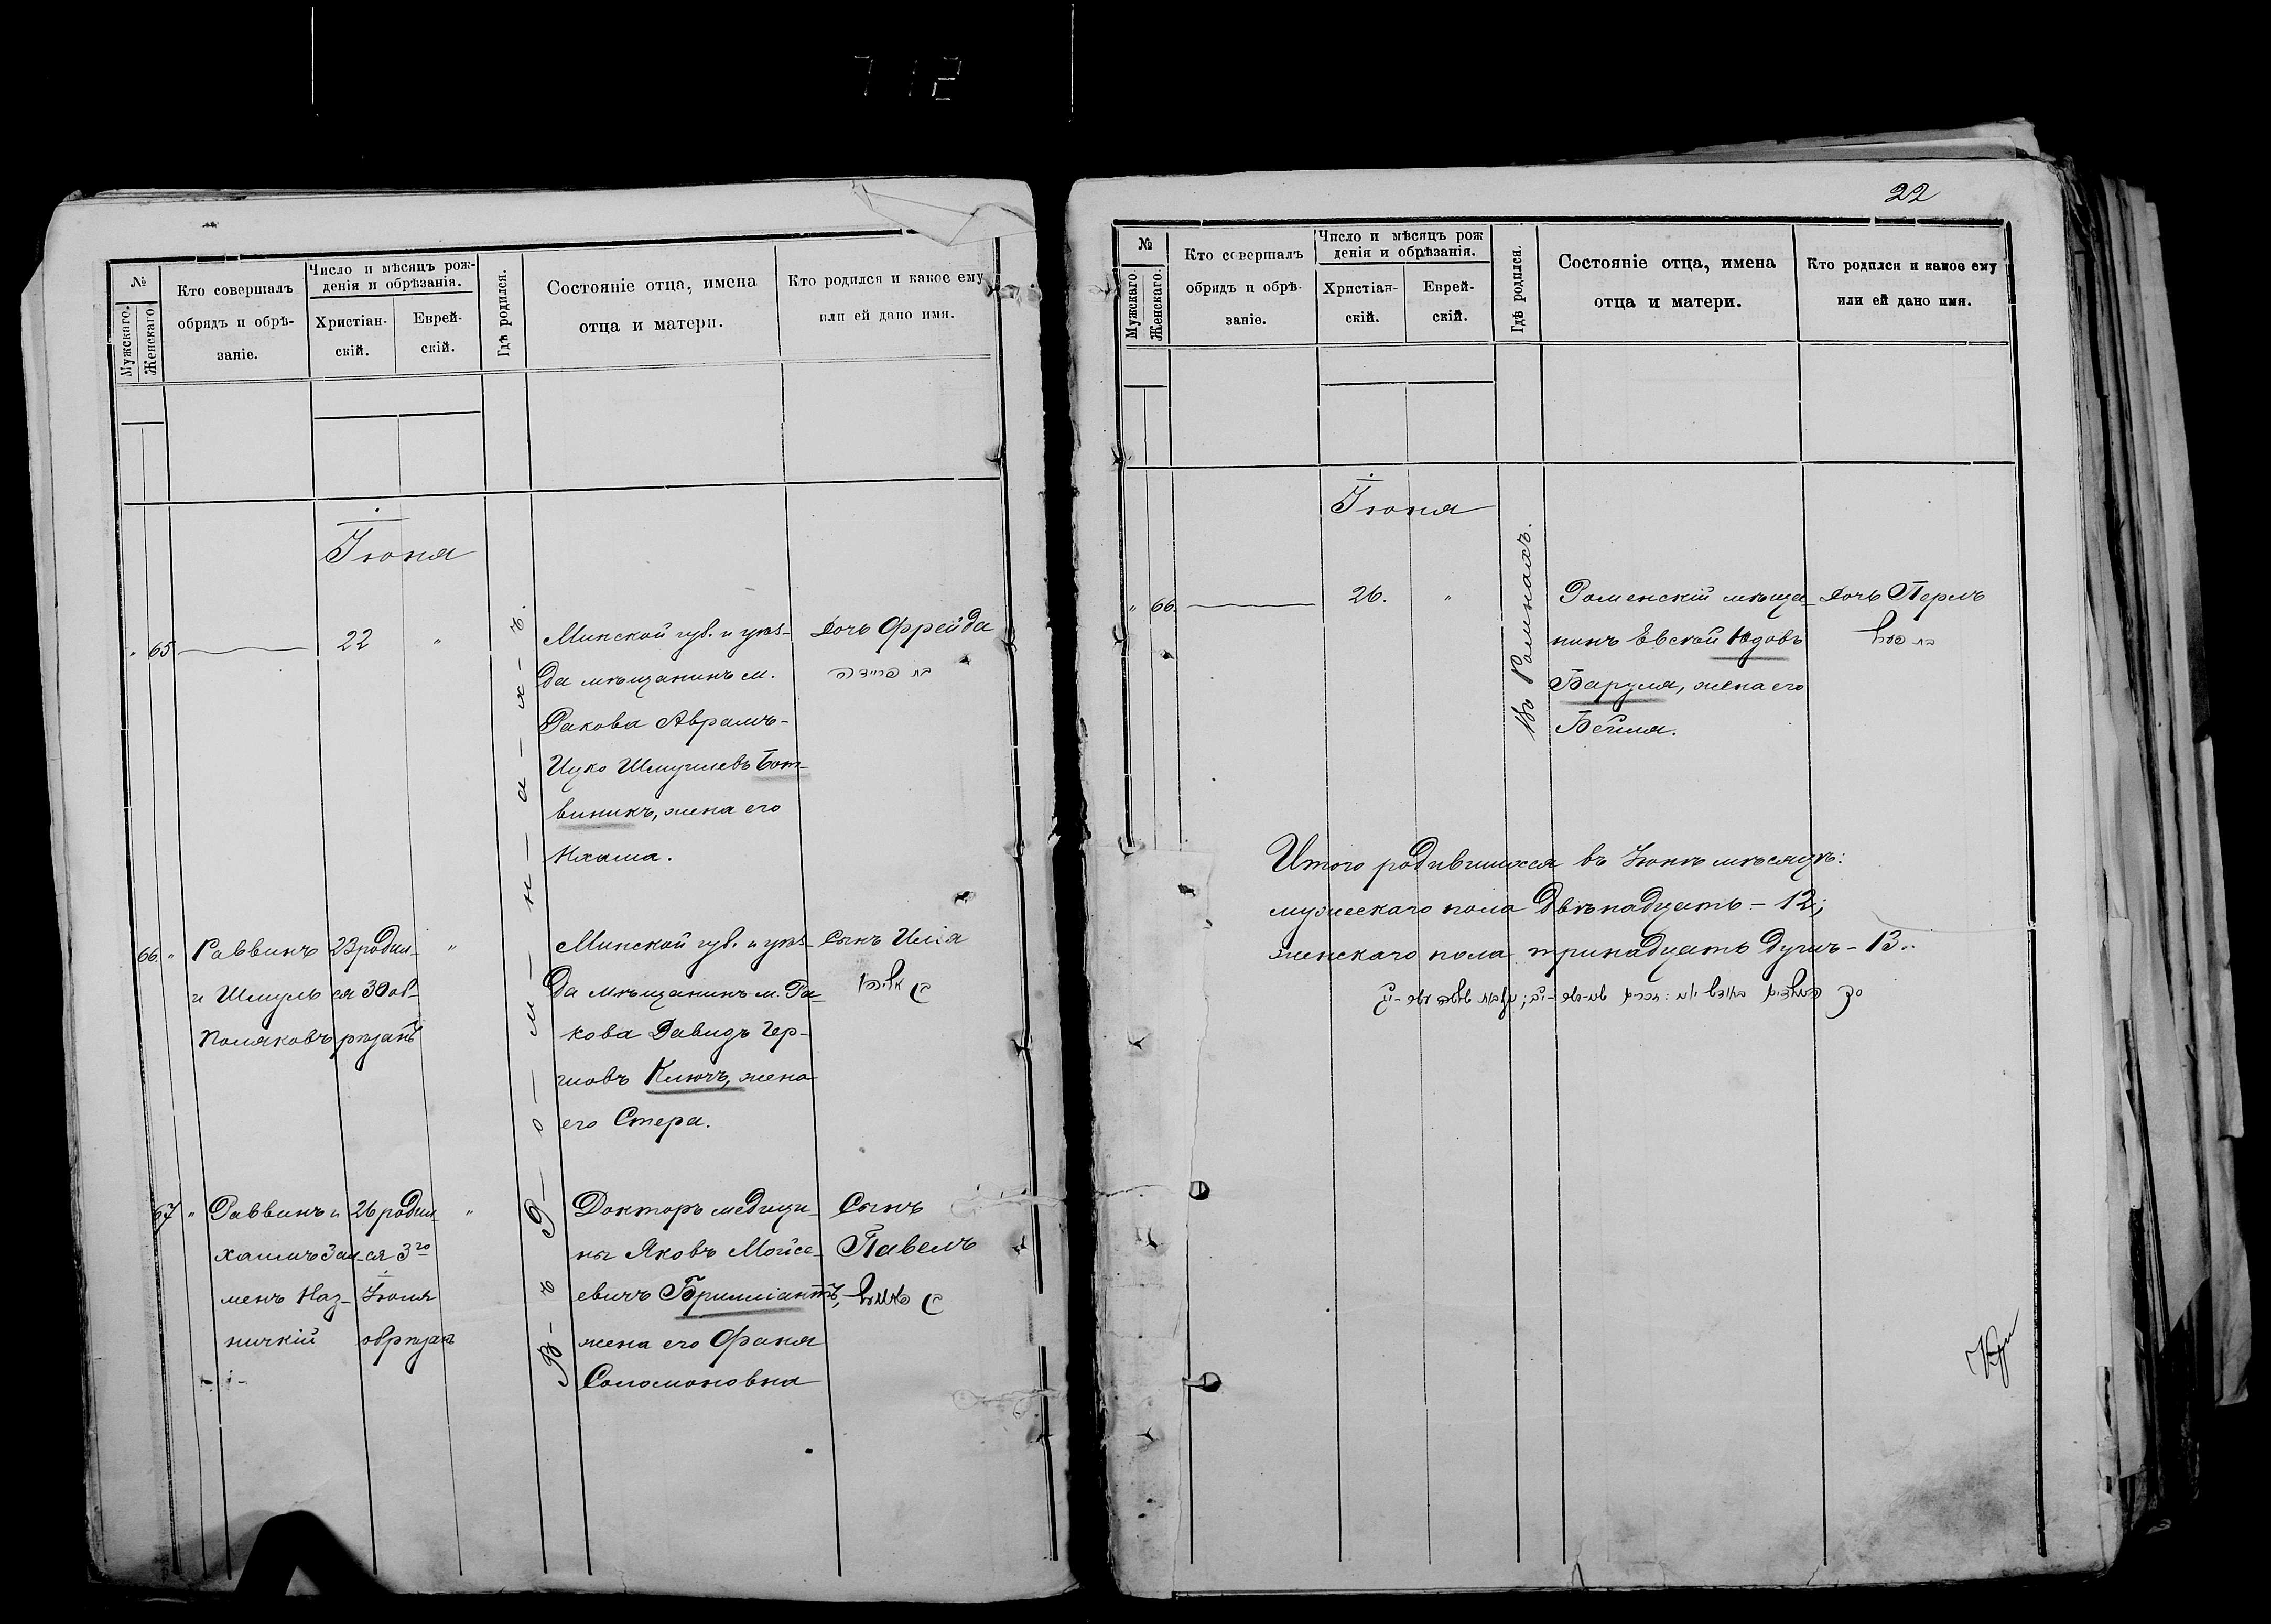 712
№
Мужскаго.
Женскаго.
Кто совершалъ
обрядъ и обрѣ-
заніе.
Число и мѣсяцъ рож-
денія и обрѣзанія.
Христіан-
скій.
Еврей-
скій.
Гдѣ родился.
Состояніе отца, имена
отца и матери.
Кто родился и какое ему
или ей дано имя.
Іюня
В-ъ Р-о-м-н-а-х-ъ.
" 65 22 "
Минской губ. и уѣз-
да мѣщанинъ м.
Ракова Абрамъ-
Ицко Шмуилевъ Бот-
виникъ, жена его
Нхама.
Дочь Фрейда
בת פריידא
66. "
Раввинъ
и Шмуль
Поляковъ
23 родил-
ся 30 об-
рѣзанъ
"
Минской губ. и уѣз-
да мѣщанинъ м. Ра-
кова Давидъ Гер-
шовъ Ключъ, жена
его Стера.
Сынъ Илія
בן אליהו
67 "
Раввинъ и
Хаимъ Зал-
менъ Наз-
ничкій
26 родил-
ся 3го
Іюля
обрѣзанъ
"
Докторъ медици-
ны Яковъ Мойсе-
евичъ Брилліантъ,
жена его Фаня
Соломоновна
Сынъ
Павелъ
בן
22
№
Мужскаго
Женскаго.
Кто совершалъ
обрядъ и обрѣ-
заніе.
Число и мѣсяцъ рож
денія и обрѣзанія.
Христіан-
скій.
Еврей-
скій.
Гдѣ родился.
Состояніе отца, имена
отца и матери.
Кто родился и какое ему
или ей дано имя.
Іюня
" 66. 26. "
Въ Ромнахъ.
Роменскій мѣща-
нинъ Евсей Юдовъ
Барзля, жена его
Бейля.
Дочь Перлъ
בת פערל
Итого родившихся въ Іюнѣ мѣсяцѣ:
мужескаго пола двѣнадцать - 12;
женскаго пола тринадцать душъ - 13.